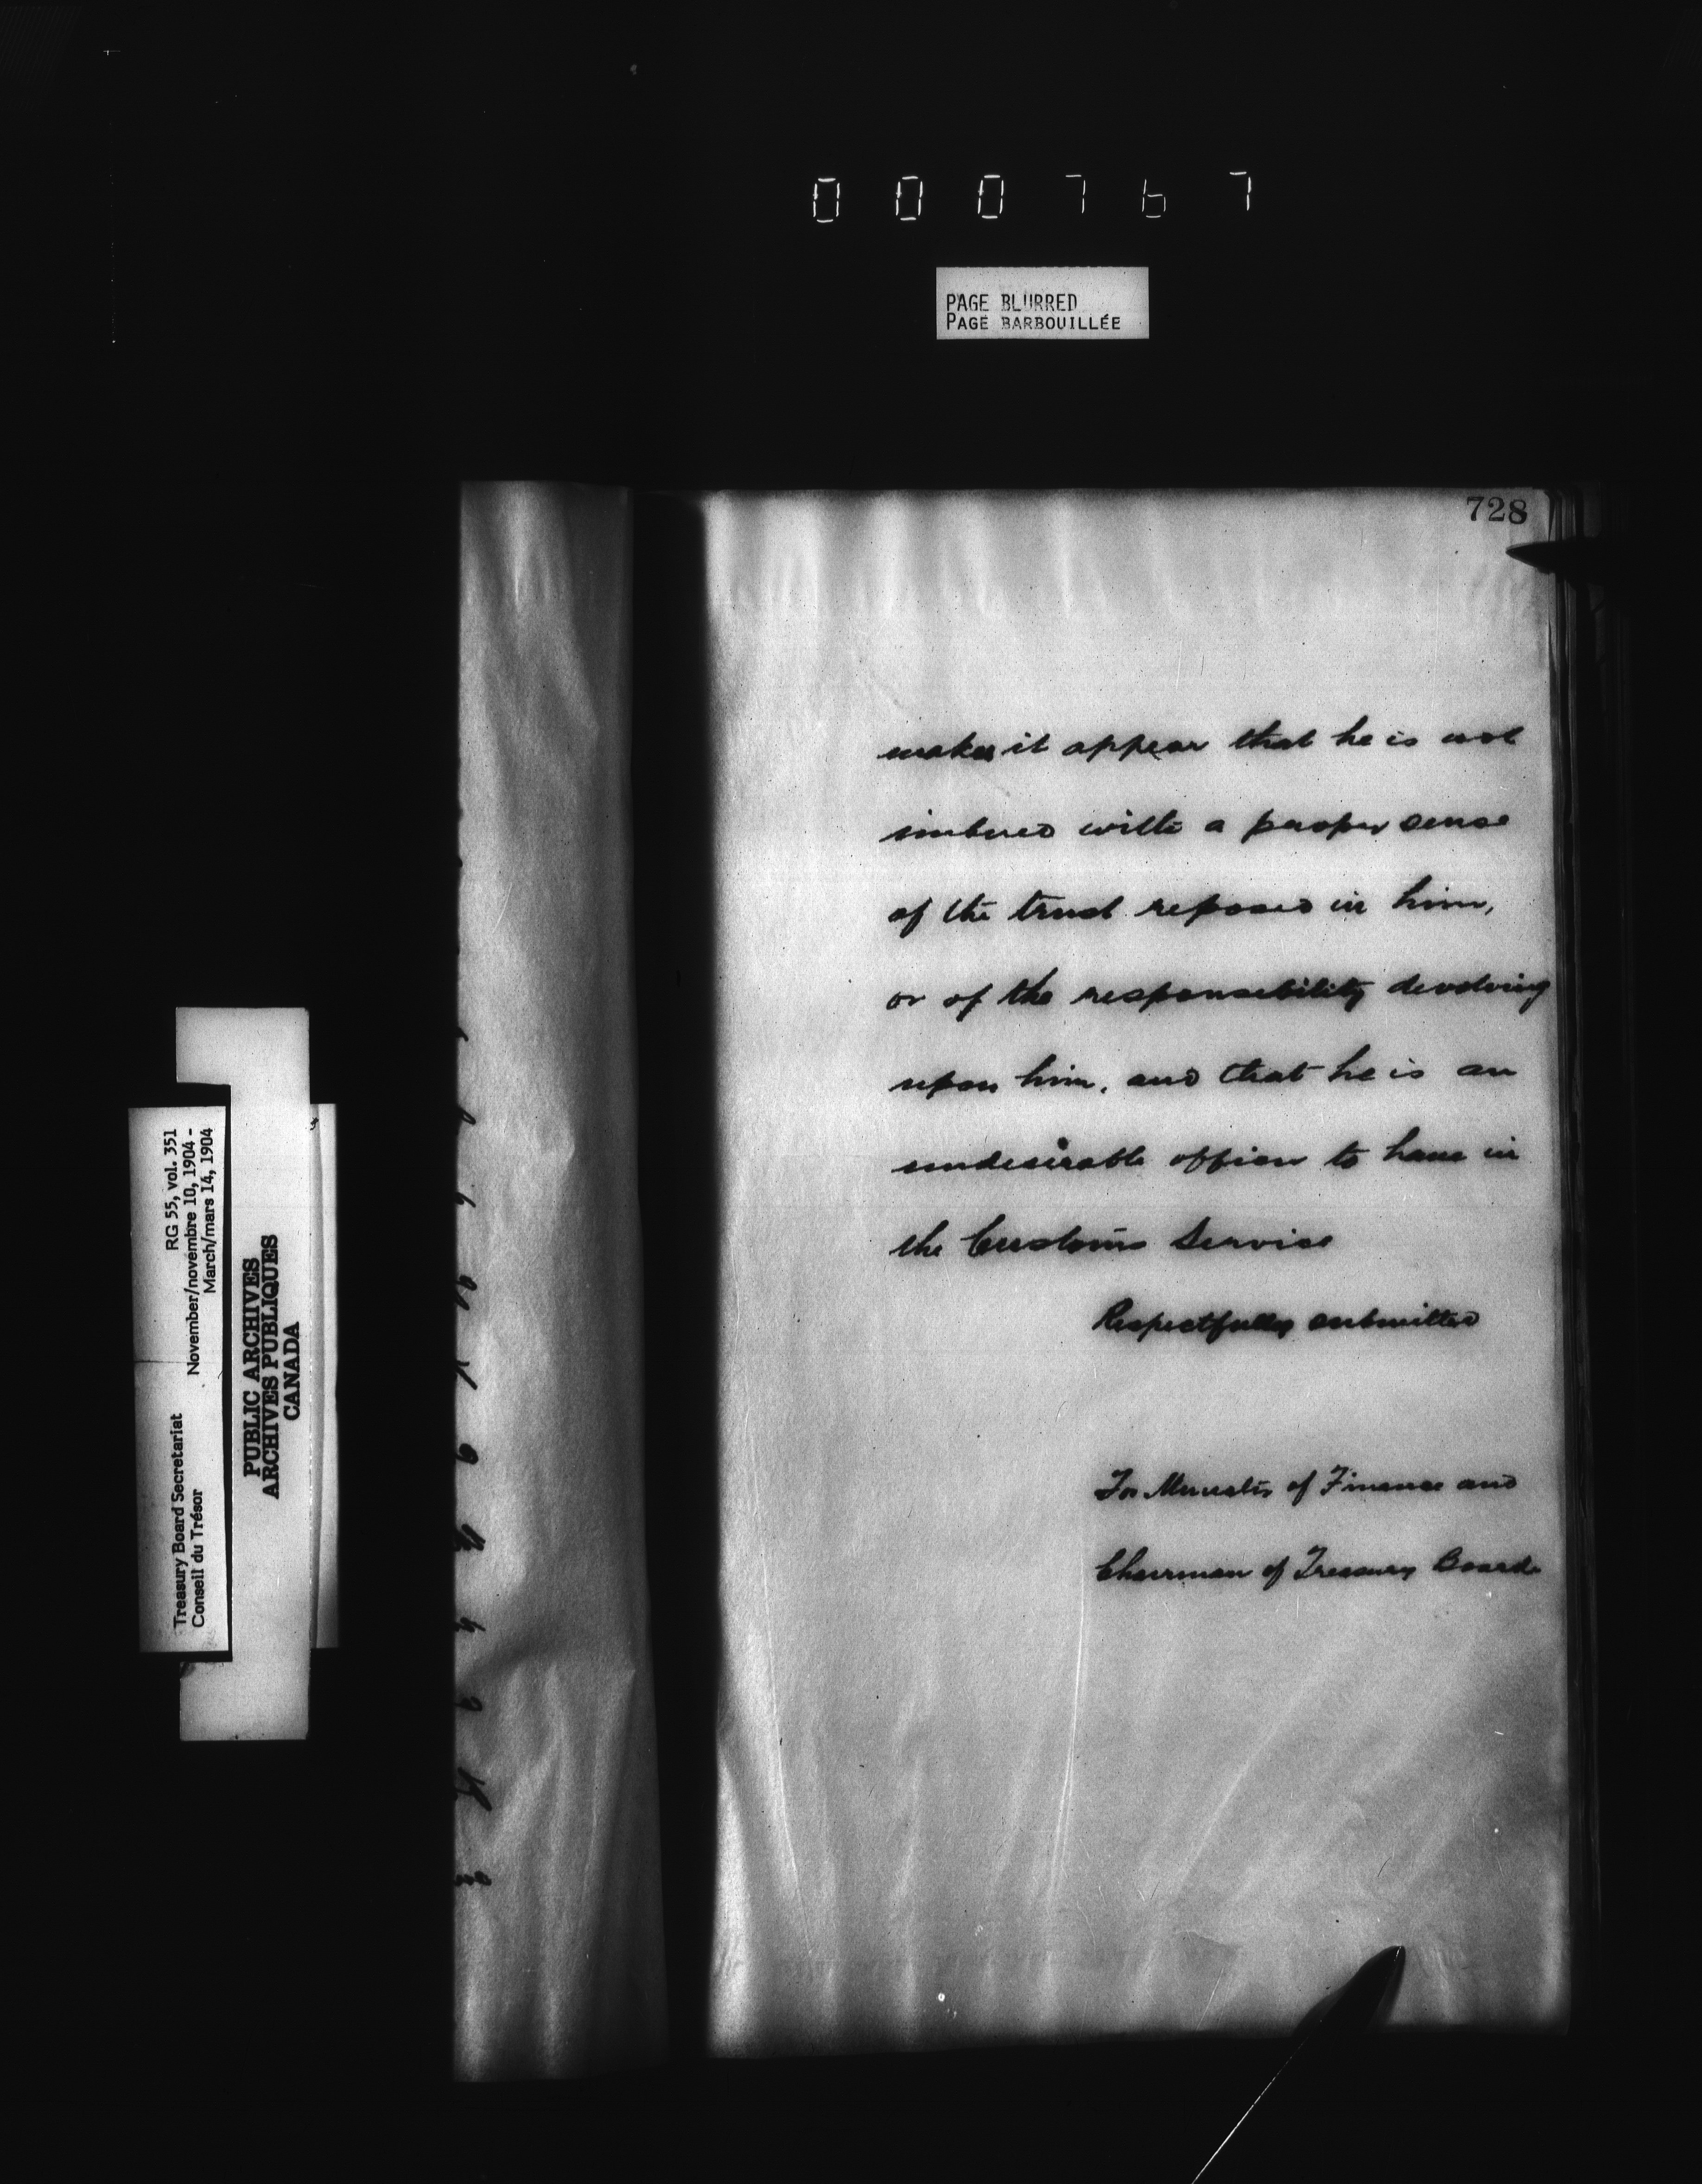 000767
PAGE BLURRED
PAGE BARBOUILLÉE
728
makes it appear that he is not
imbued with a proper sense
of the trust reposed in him,
or of the responsibility devolving
upon him, and that he is an
undesirable officer to have in
the Customs Service
Respectfully submitted
For Minister of Finance and
Chairman of Treasury Board
Treasury Board Secretariat RG 55, vol. 351
Conseil du Trésor November/novembre 10, 1904 -
March/mars 14, 1904
PUBLIC ARCHIVES
ARCHIVES PUBLIQUES
CANADA